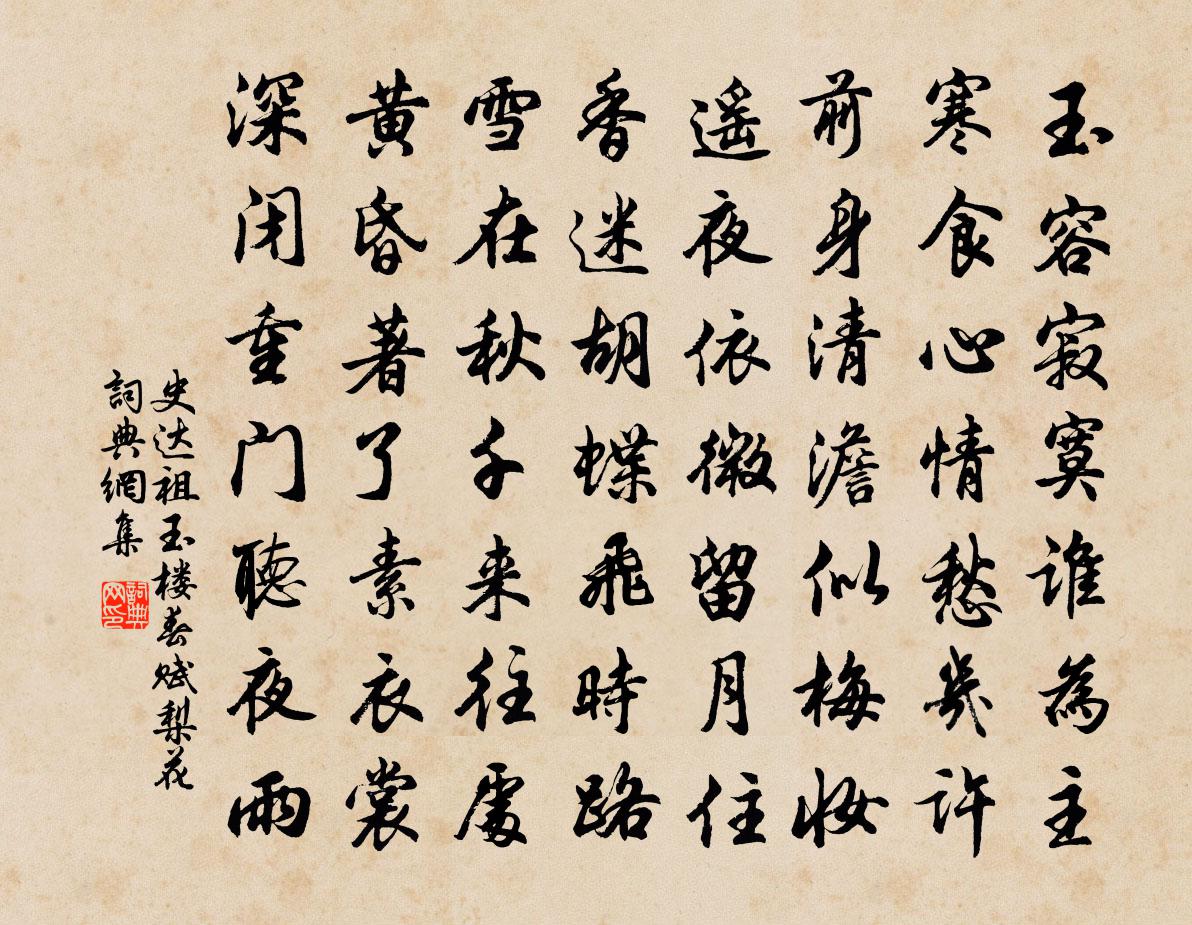 玉容寂寞谁為主
寒食心情愁幾许
前身清澹似梅妝
遥夜依微留月住
香迷胡蝶飛時路
雪在秋千来往處
黄昏著了素衣裳
深闭重门聽夜雨
史达祖玉楼春赋梨花
詞典網集
詞典网印